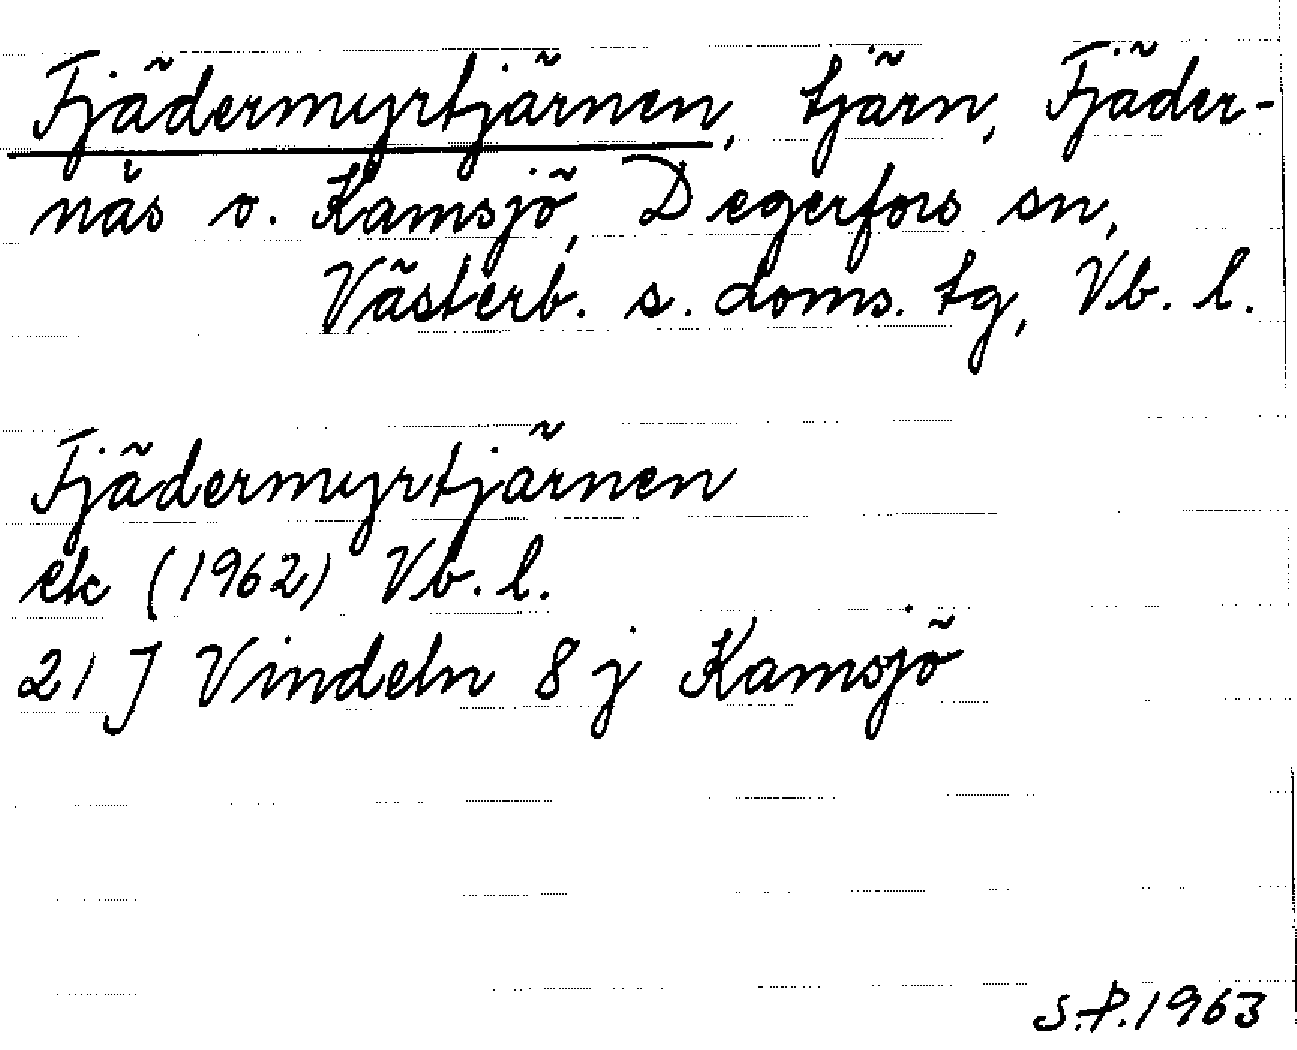 Fjädermyrtjärnen, tjärn, Fjäder-
näs o. Kamsjö, Degerfors sn,
Västerb. s. doms. tg, Vb. l.
Fjädermyrtjärnen
ek (1962) Vb. l.
21 J Vindeln 8 j Kamsjö
S.P. 1963